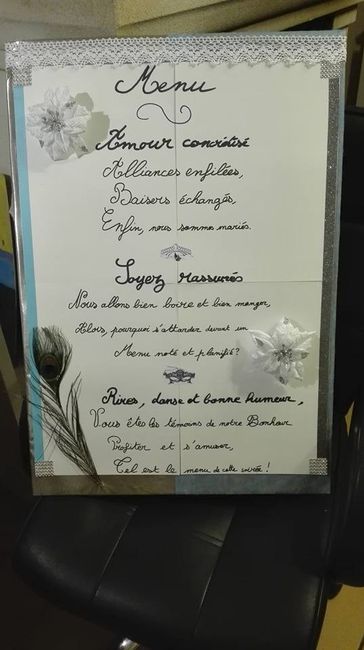 Menu
Amour concrétisé
Alliances enfilées,
Baisers échangés,
Enfin, nous sommes mariés.
Soyez rassurés
Nous allons bien boire et bien manger,
Alors, pourquoi s'attarder devant un
Menu noté et planifié?
Rires, danse et bonne humeur,
Vous êtes les témoins de notre Bonheur
Profiter et s'amuser,
Tel est le menu de cette soirée!